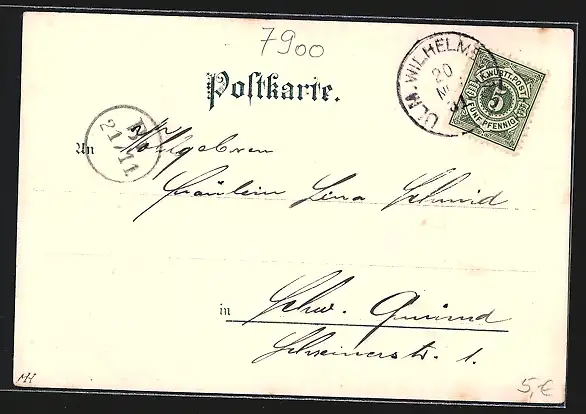 7900
ULM. WILHELMS
20
K. WÜRTT. POST
5
FÜNF PFENNIG
Postkarte.
21 11.
An Wohlgeboren
Fräulein Lina Schmid
in Schw. Gmünd
1.
MH
5,-€